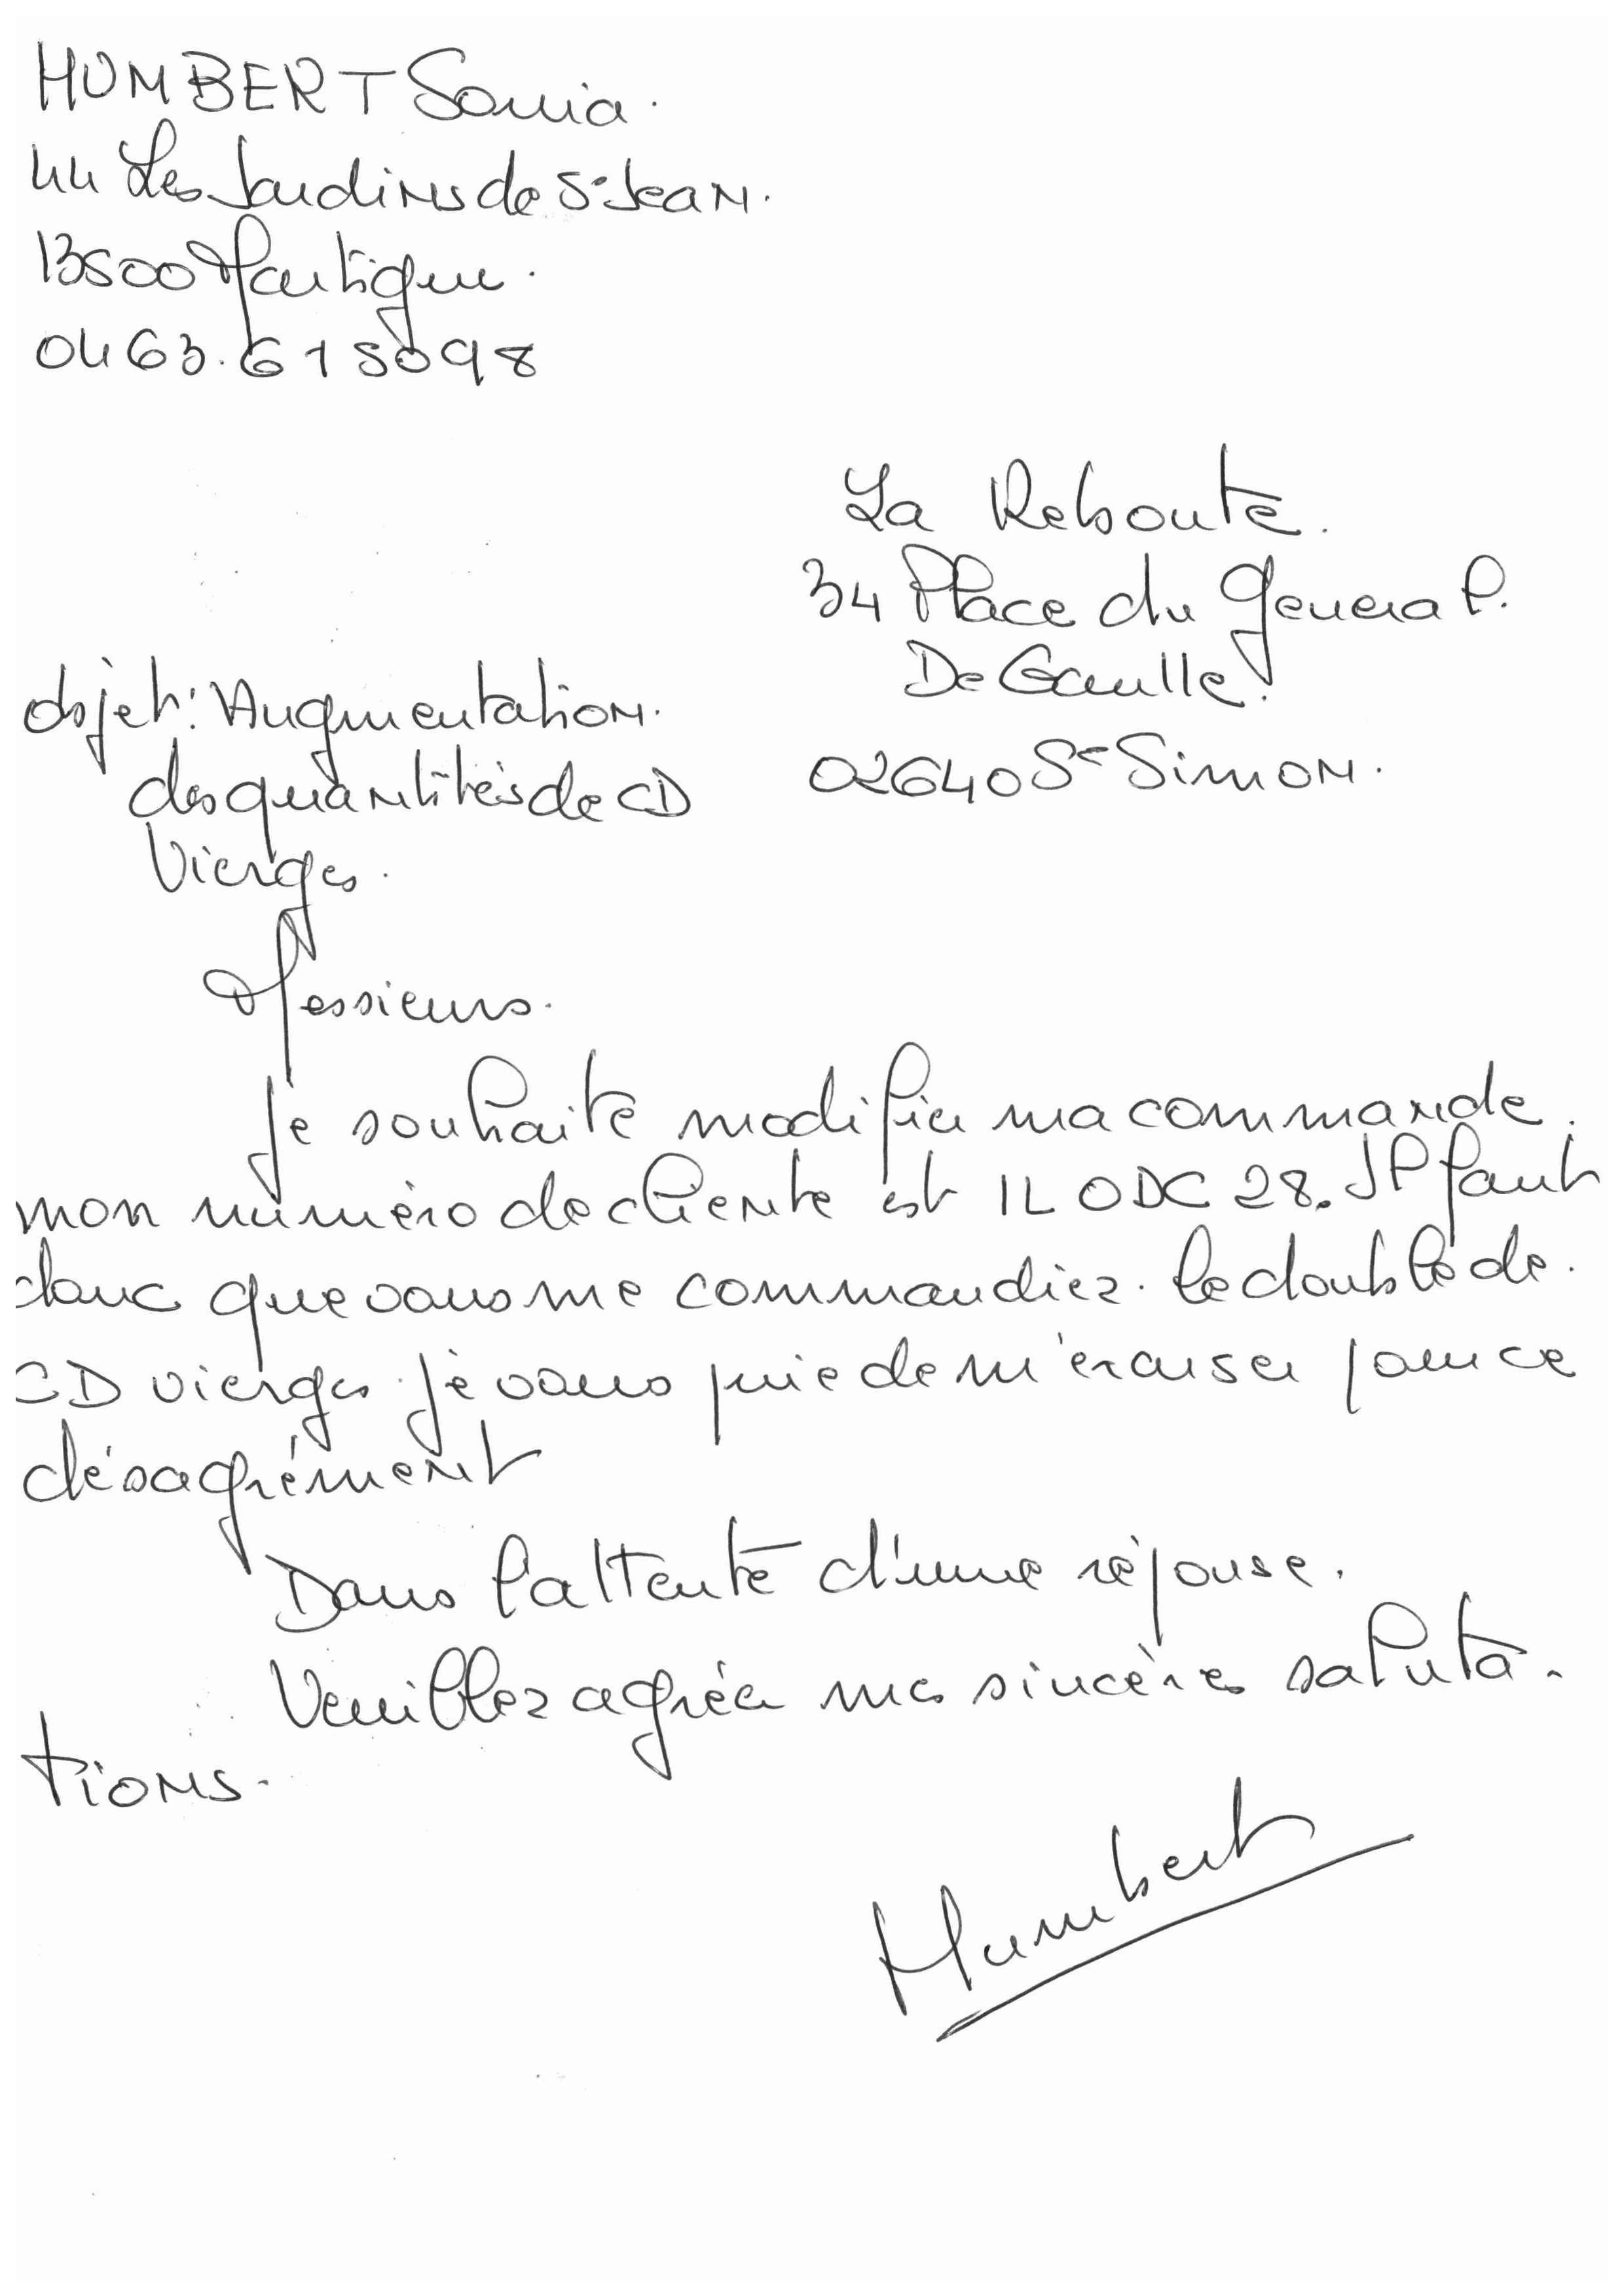 HUMBERT Sonia.
44 Les Jardins de St Jean.
13500 Martigue.
0463.615098
La Reboute.
34 Place du General.
De Gaulle.
02640 St Simon.
objet: Augmentation.
des quantités de CD
Vierges.
Messieurs.
je souhaite modifier ma commande.
mon numéro de cliente est ILODC28. Il faut
donc que vous me commandiez. le double de.
CD vierges. je vous prie de m'excuser pour ce
désagrément
Dans l'attente d'une réponse.
Veuillez agréer mes sincères saluta-
tions.
Humbert